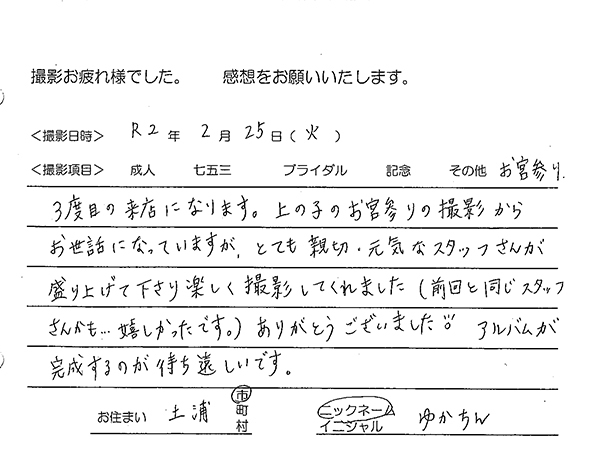 撮影お疲れ様でした。 感想をお願いいたします。
<撮影日時> R2年 2月 25日(火)
<撮影項目> 成人 七五三 ブライダル 記念 その他 お宮参り.
3度目の来店になります。上の子のお宮参りの撮影から
お世話になっていますが、とても親切・元気なスタッフさんが
盛り上げて下さり楽しく撮影してくれました(前回と同じスタッフ
さんかも…嬉しかったです。)ありがとうございました!! アルバムが
完成するのが待ち遠しいです。
お住まい 土浦 市町村 ニックネーム イニシャル ゆかちん